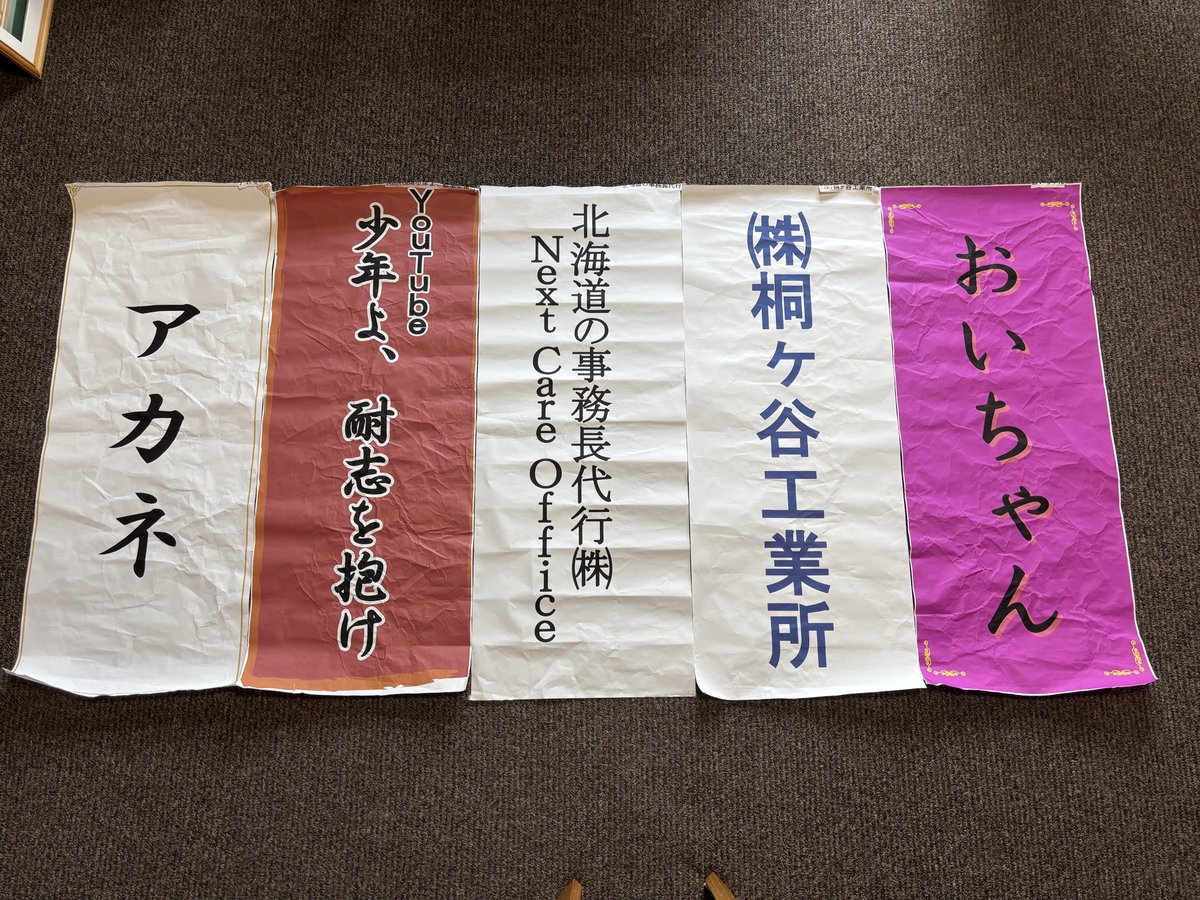 おいちゃん
㈱桐ヶ谷工業所
北海道の事務長代行㈱
Next Care Office
YouTube
少年よ、耐志を抱け
アカネ